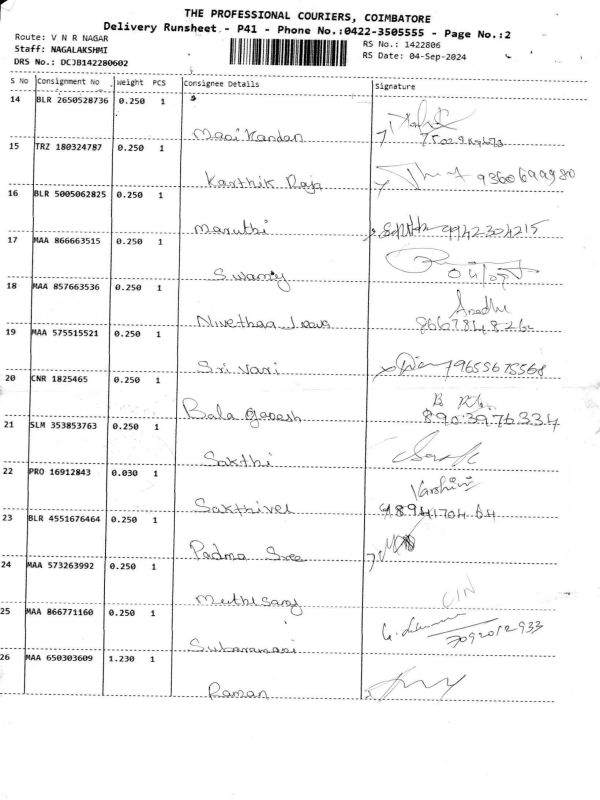 THE PROFESSIONAL COURIERS, COIMBATORE
Delivery Runsheet - P41 - Phone No.:0422-3505555 - Page No.:2
Route: V N R NAGAR
Staff: NAGALAKSHMI
DRS No.: DCJB142280602
RS No.: 1422806
RS Date: 04-Sep-2024
S No Consignment No Weight PCS Consignee Details Signature
14 BLR 2650528736 0.250 1
Manikandan
15 TRZ 180324787 0.250 1
Karthik Raja 9360699980
16 BLR 5005062825 0.250 1
Maruthi 9942324215
17 MAA 866663515 0.250 1
Swamy
18 MAA 857663536 0.250 1
Nivethaa
19 MAA 575515521 0.250 1
Sri Vari 9655675568
20 CNR 1825465 0.250 1
Bala ganesh 8903976334
21 SLM 353853763 0.250 1
Sakthi
22 PRO 16912843 0.030 1 Varshini
Sakthivel
23 BLR 4551676464 0.250 1
Padma Sree
24 MAA 573263992 0.250 1
25 MAA 866771160 0.250 1
3092012933
26 MAA 650303609 1.230 1
Raman